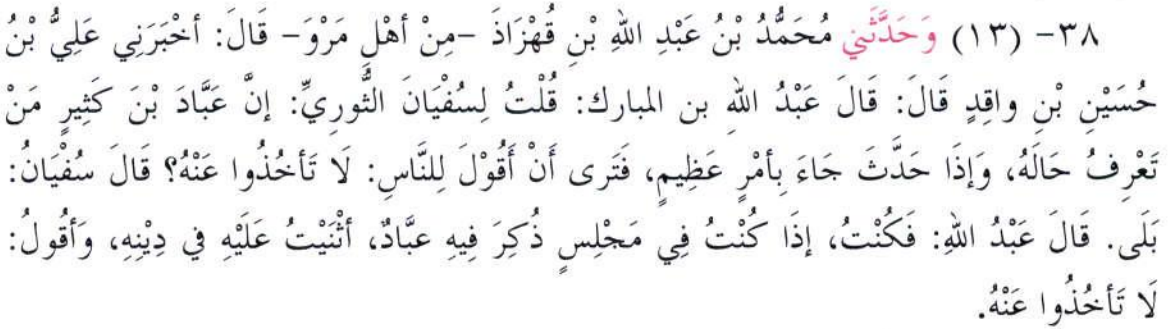 ٣٨- (١٣) وَحَدَّثَنِي مُحَمَّدُ بْنُ عَبْدِ اللهِ بْنِ قُهْزَاذَ -مِنْ أَهْلِ مَرْوَ- قَالَ: أَخْبَرَنِي عَلِيُّ بْنُ
حُسَيْنِ بْنِ واقِدٍ قَالَ: قَالَ عَبْدُ اللهِ بن المبارك: قُلْتُ لِسُفْيَانَ الثَّوريِّ: إنَّ عَبَّادَ بْنَ كَثِيرٍ مَنْ
تَعْرِفُ حَالَهُ، وَإِذَا حَدَّثَ جَاءَ بِأَمْرٍ عَظِيمٍ، فَتَرى أَنْ أَقُوْلَ لِلنَّاسِ: لَا تَأخُذُوا عَنْهُ؟ قَالَ سُفْيَانُ:
بَلَى. قَالَ عَبْدُ اللهِ: فَكُنْتُ، إذَا كُنْتُ فِي مَجْلِسٍ ذُكِرَ فِيهِ عبَّادٌ، أثْنَيْتُ عَلَيْهِ في دِيْنِهِ، وَأقُولُ:
لَا تَأخُذُوا عَنْهُ.